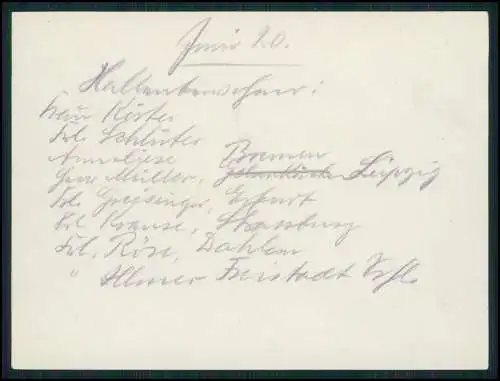 Juni 20.
Hallenbewohner:
Frau Köster
Frl. Schlüter
Anneliese Bremen
Herr Müller, Leipzig
Frl. Greisinger, Erfurt
Frl. Krause, Strassburg
Frl. Röse, Dahlem
" Illmer Freistadt